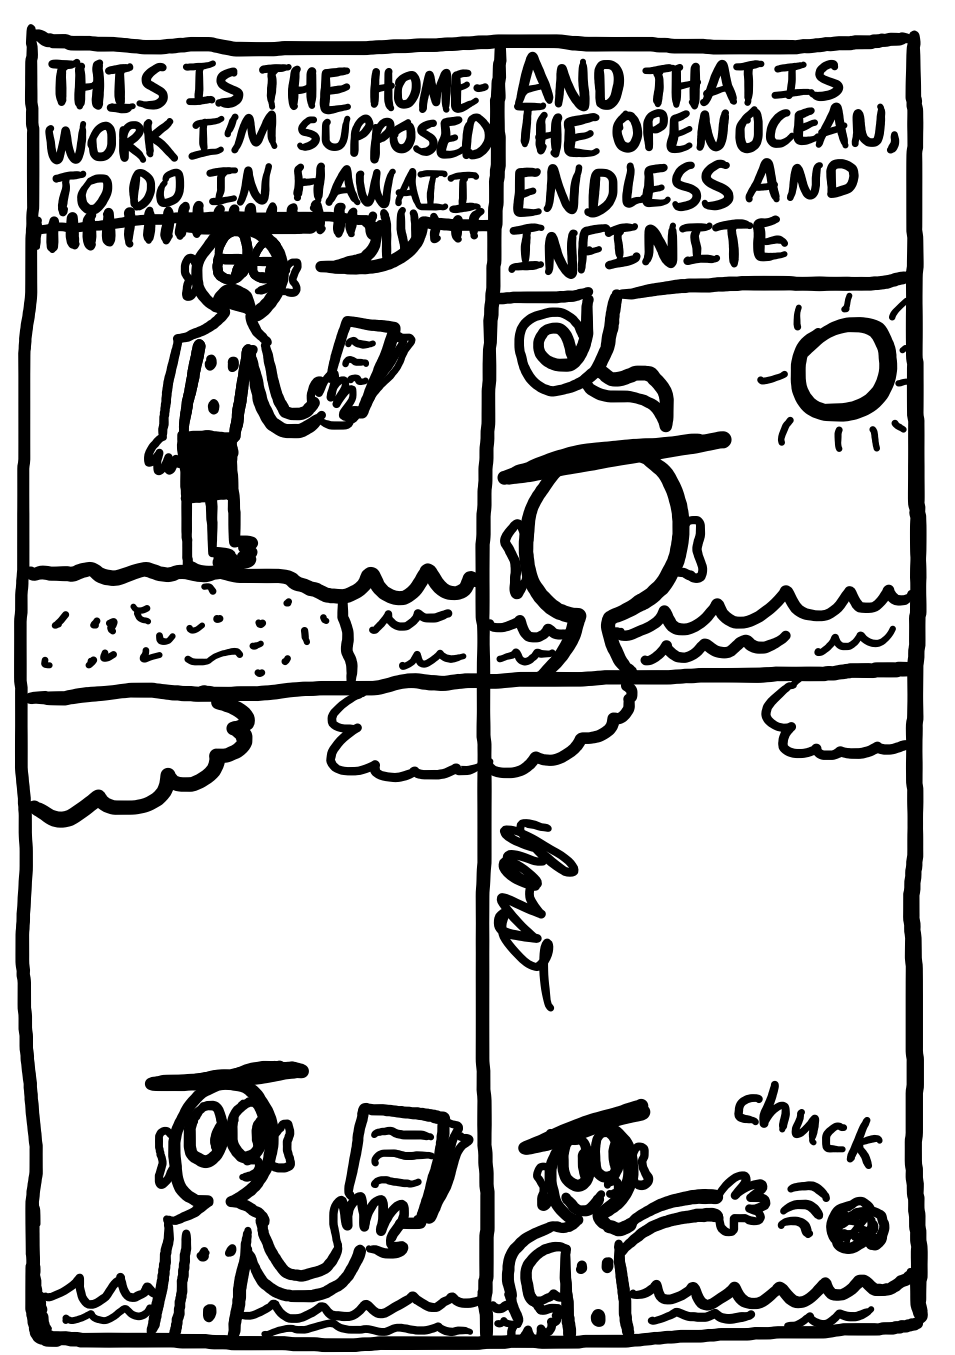 THIS IS THE HOME-
WORK I'M SUPPOSED
TO DO IN HAWAII
AND THAT IS
THE OPEN OCEAN,
ENDLESS AND
INFINITE
chuck